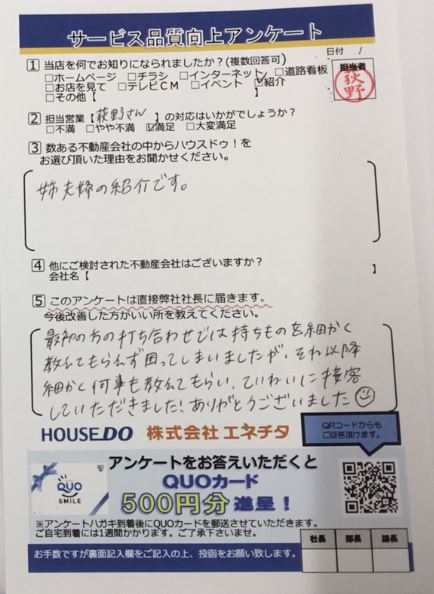 サービス品質向上アンケート
日付　/
1 当店を何でお知りになられましたか？(複数回答可)
□ホームページ □チラシ □インターネット □道路看板
□お店を見て □テレビCM □イベント ☑紹介
□その他【　】
担当者
荻野
2 担当営業【荻野さん】の対応はいかがでしょうか？
□不満 □やや不満 ☑満足 □大変満足
3 数ある不動産会社の中からハウスドゥ！を
お選び頂いた理由をお聞かせください。
姉夫婦の紹介です。
4 他にご検討された不動産会社はございますか？
会社名【　】
5 このアンケートは直接弊社社長に届きます。
今後改善した方がいい所を教えてください。
最初の方の打ち合わせでは持ちものを細かく
教えてもらえず困ってしまいましたが、それ以降
細かく何事も教えてもらい、ていねいに接客
していただきました！ありがとうございました☺
HOUSE DO 株式会社 エネチタ
QRコードからも
ご回答頂けます。
QUO
SMILE
アンケートをお答えいただくと
QUOカード
500円分 進呈！
※アンケートハガキ到着後にQUOカードを郵送させていただきます。
ご自宅到着には1週間かかります。ご了承下さいませ。
お手数ですが裏面記入欄をご記入の上、投函をお願い致します。
社長 部長 議長